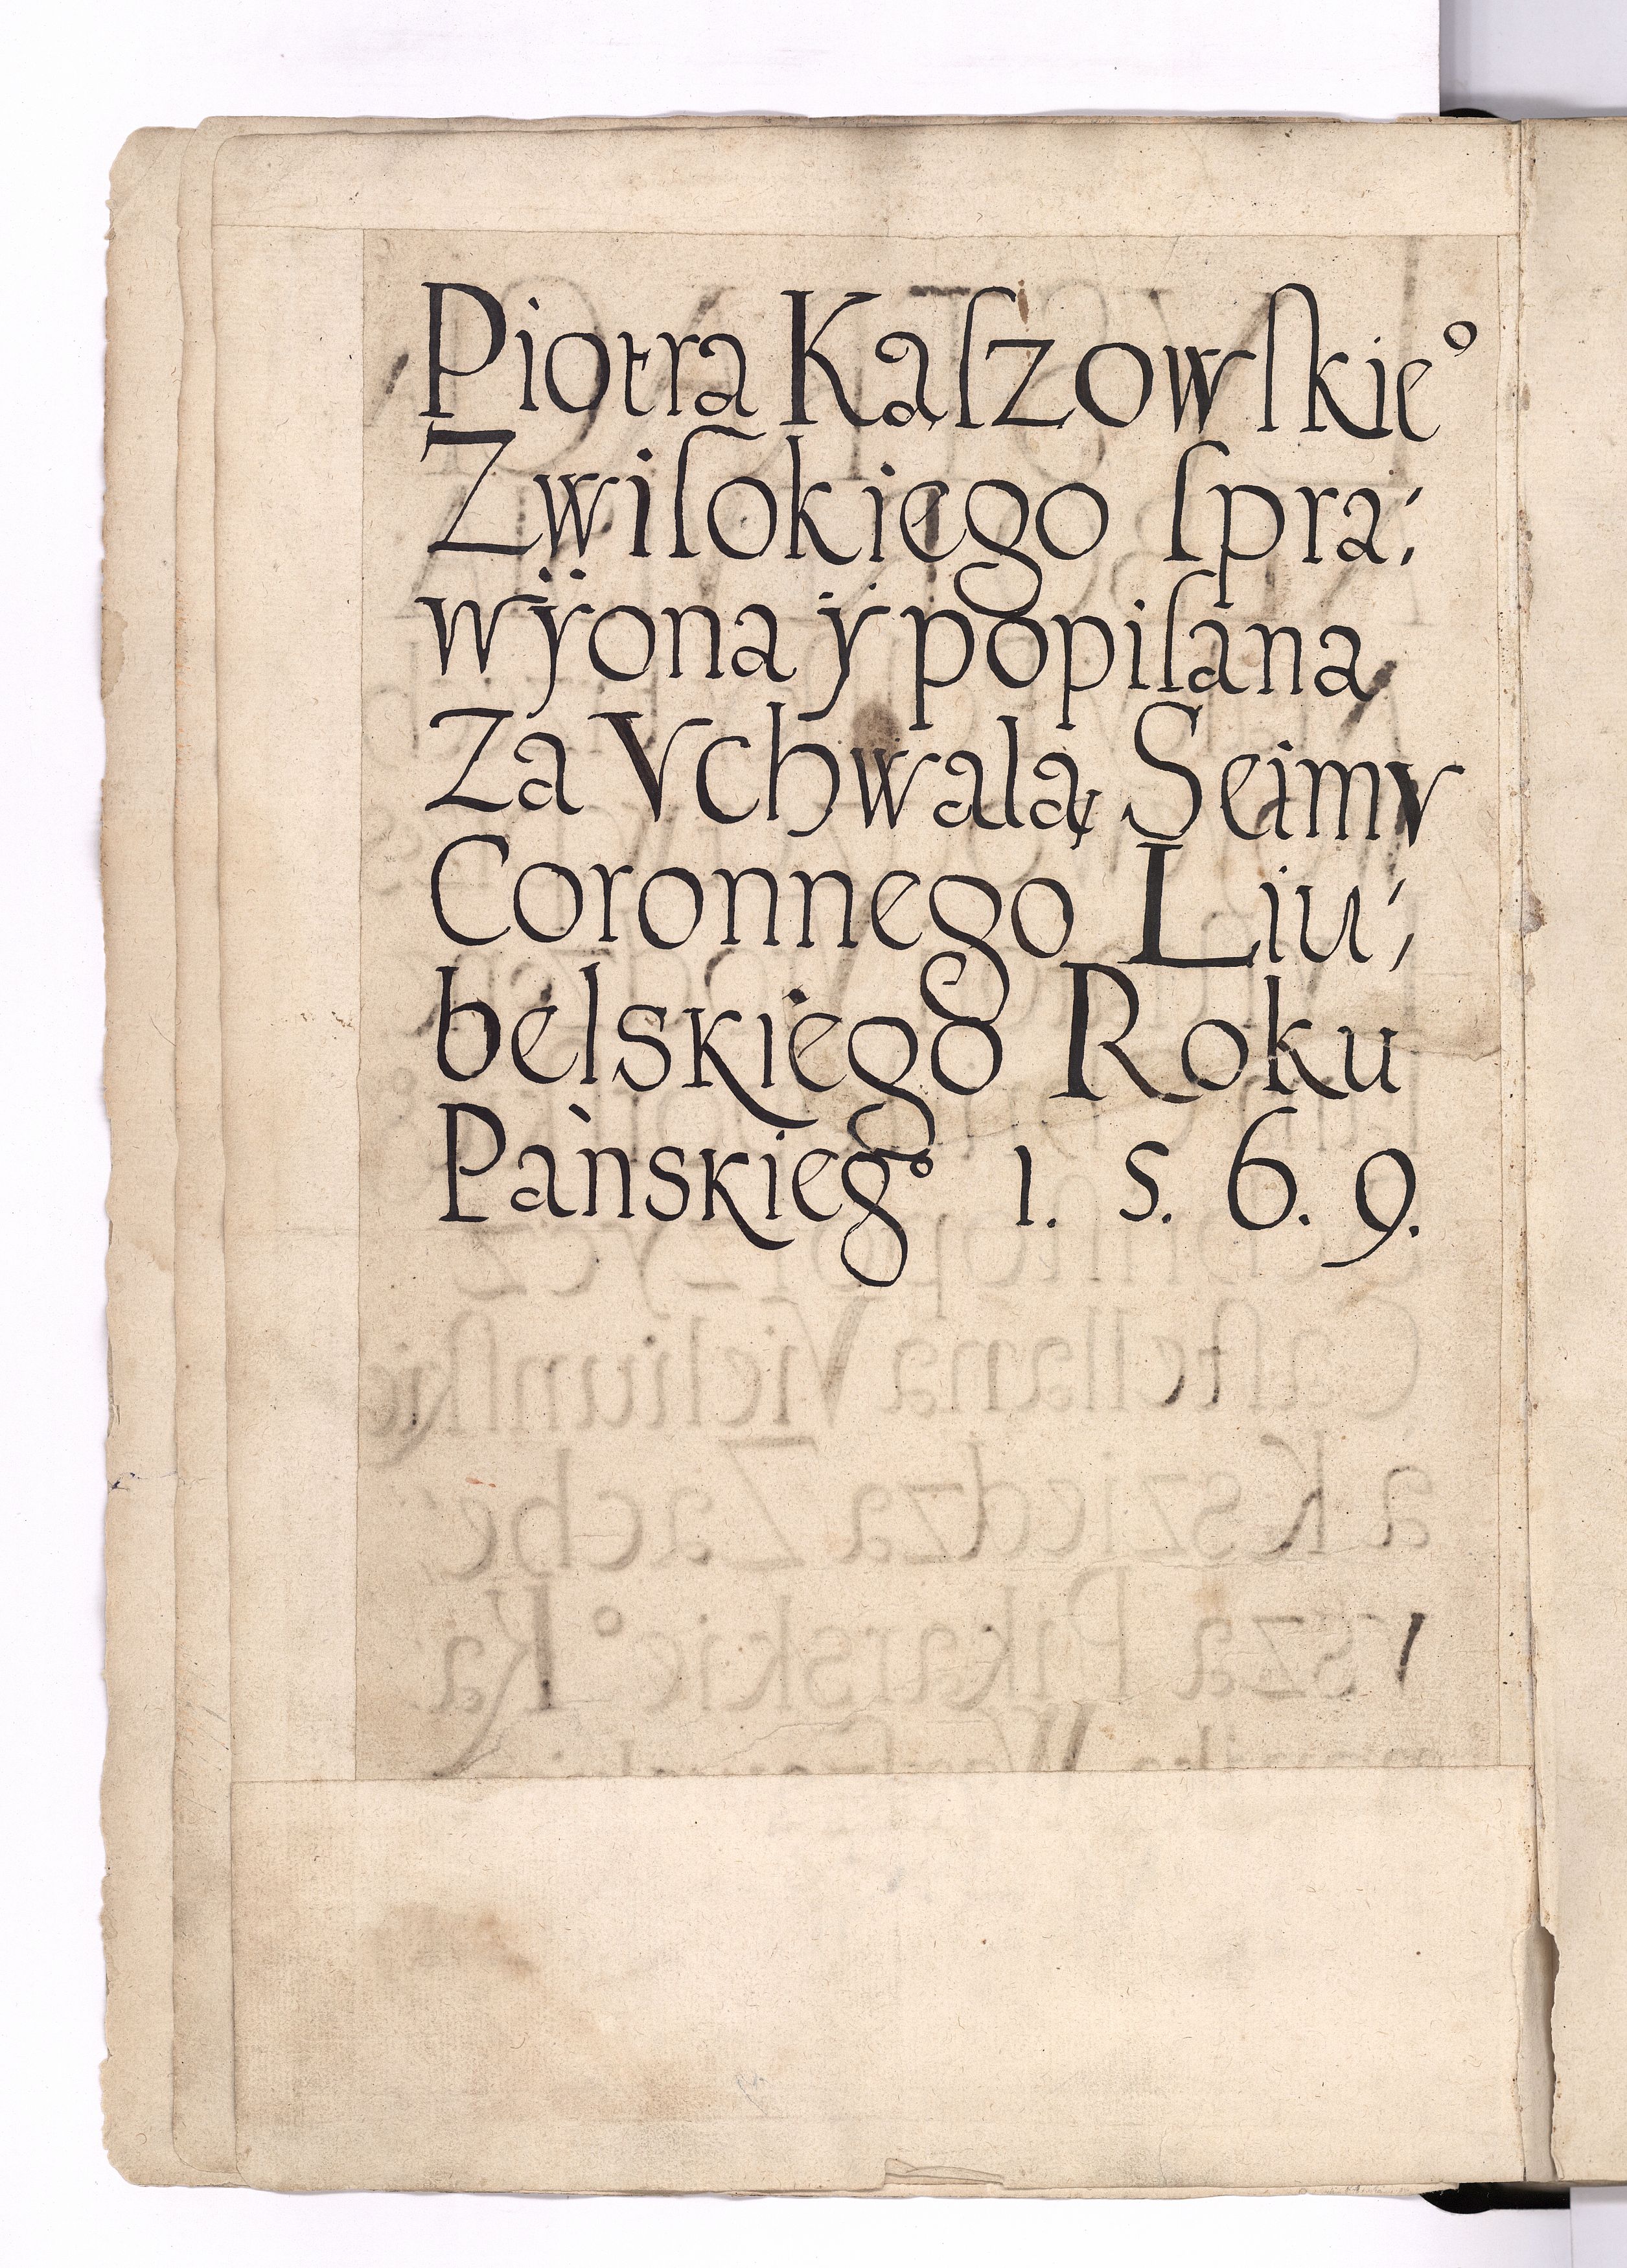 Piotra Kaſzowſkie°
Zwiſokiego ſpra;
wÿona ÿ popiſana
Za Vchwalą Seimv
Coronnego Liu;
belskiego Roku
Pańskieg° 1. 5. 6. 9.